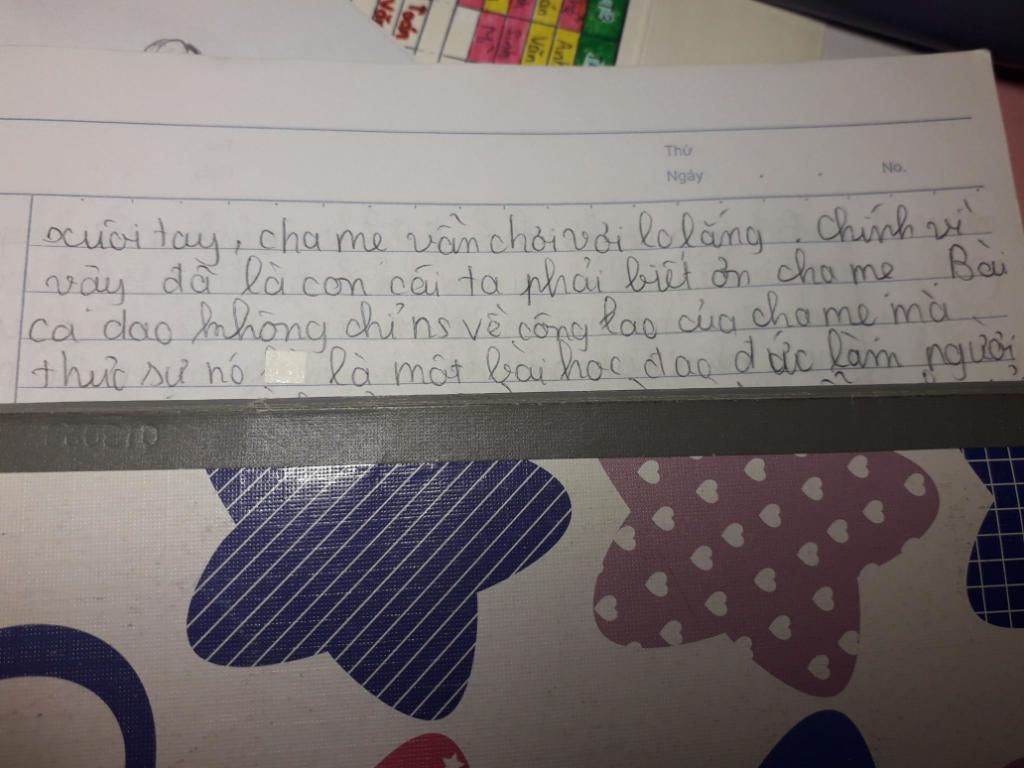 Toán
Văn
Văn
Anh
Thứ
Ngày
No.
xuôi tay, cha mẹ vẫn chơi vơi lo lắng. Chính vì
vậy đã là con cái ta phải biết ơn cha mẹ Bài
ca dao không chỉ ns về công lao của cha mẹ mà
thực sự nó là một bài học đạo đức làm người